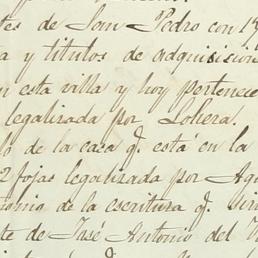 tes de San Pedro con 1
a y titulos de adquisicion
n esta villa y hoy pertenece
legalizada por Lollera.
lo de la casa q. está en la
2 fojas legalizada por Ag
monio de la escritura q.
te de José Antonio del V